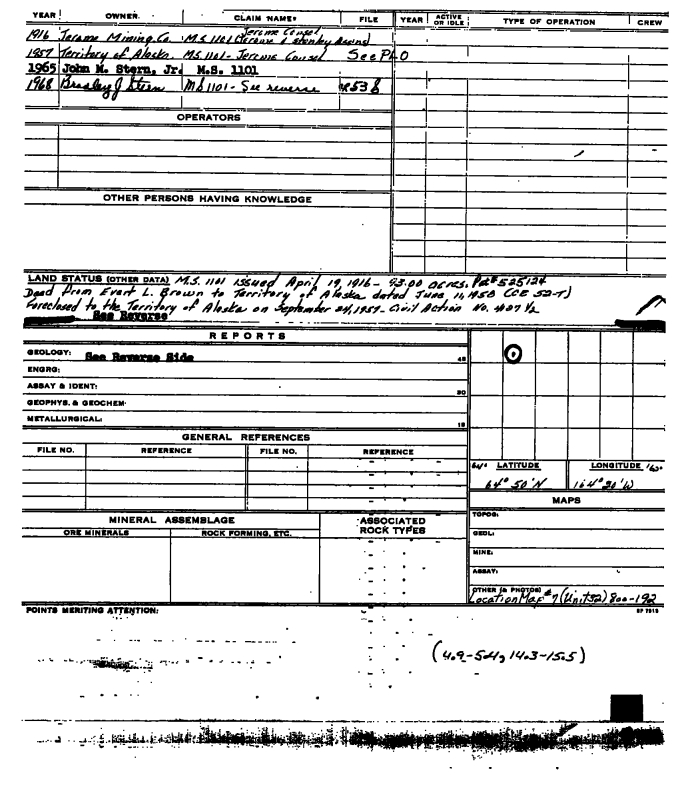 YEAR OWNER CLAIM NAME FILE YEAR ACTIVE OR IDLE TYPE OF OPERATION CREW
Jerome Consol
1916 Jerome Mining Co. M.S. 1101 Jerome & Stanley
1957 Territory of Alaska. M.S. 1101 - Jerome Consol See PhO
1965 John M. Stern, Jr. M.S. 1101
1968 Bradley J Stern MS 1101 - See reverse 538
OPERATORS
OTHER PERSONS HAVING KNOWLEDGE
LAND STATUS (OTHER DATA) M.S. 1101 issued April 19, 1916 - 93.00 acres. Pat# 525124
Deed from Evart L. Brown to Territory of Alaska dated June 11, 1950 (CE 52-T)
Foreclosed to the Territory of Alaska on September 24, 1957 - Civil Action No. 4007 ½
See Reverse
REPORTS
GEOLOGY: See Reverse Side 45
ENGRG:
ASSAY & IDENT: 30
GEOPHYS. & GEOCHEM:
METALLURGICAL: 15
GENERAL REFERENCES
FILE NO. REFERENCE FILE NO. REFERENCE
64° LATITUDE LONGITUDE 163°
64° 50'N 164° 20'W
MAPS
TOPOG:
GEOL:
MINE:
ASSAY:
OTHER (& PHOTOS)
Location Map #7 (Unit 32) 800-192
MINERAL ASSEMBLAGE ASSOCIATED ROCK TYPES
ORE MINERALS ROCK FORMING, ETC.
POINTS MERITING ATTENTION:
(4.9-5.4, 14.3-15.5)